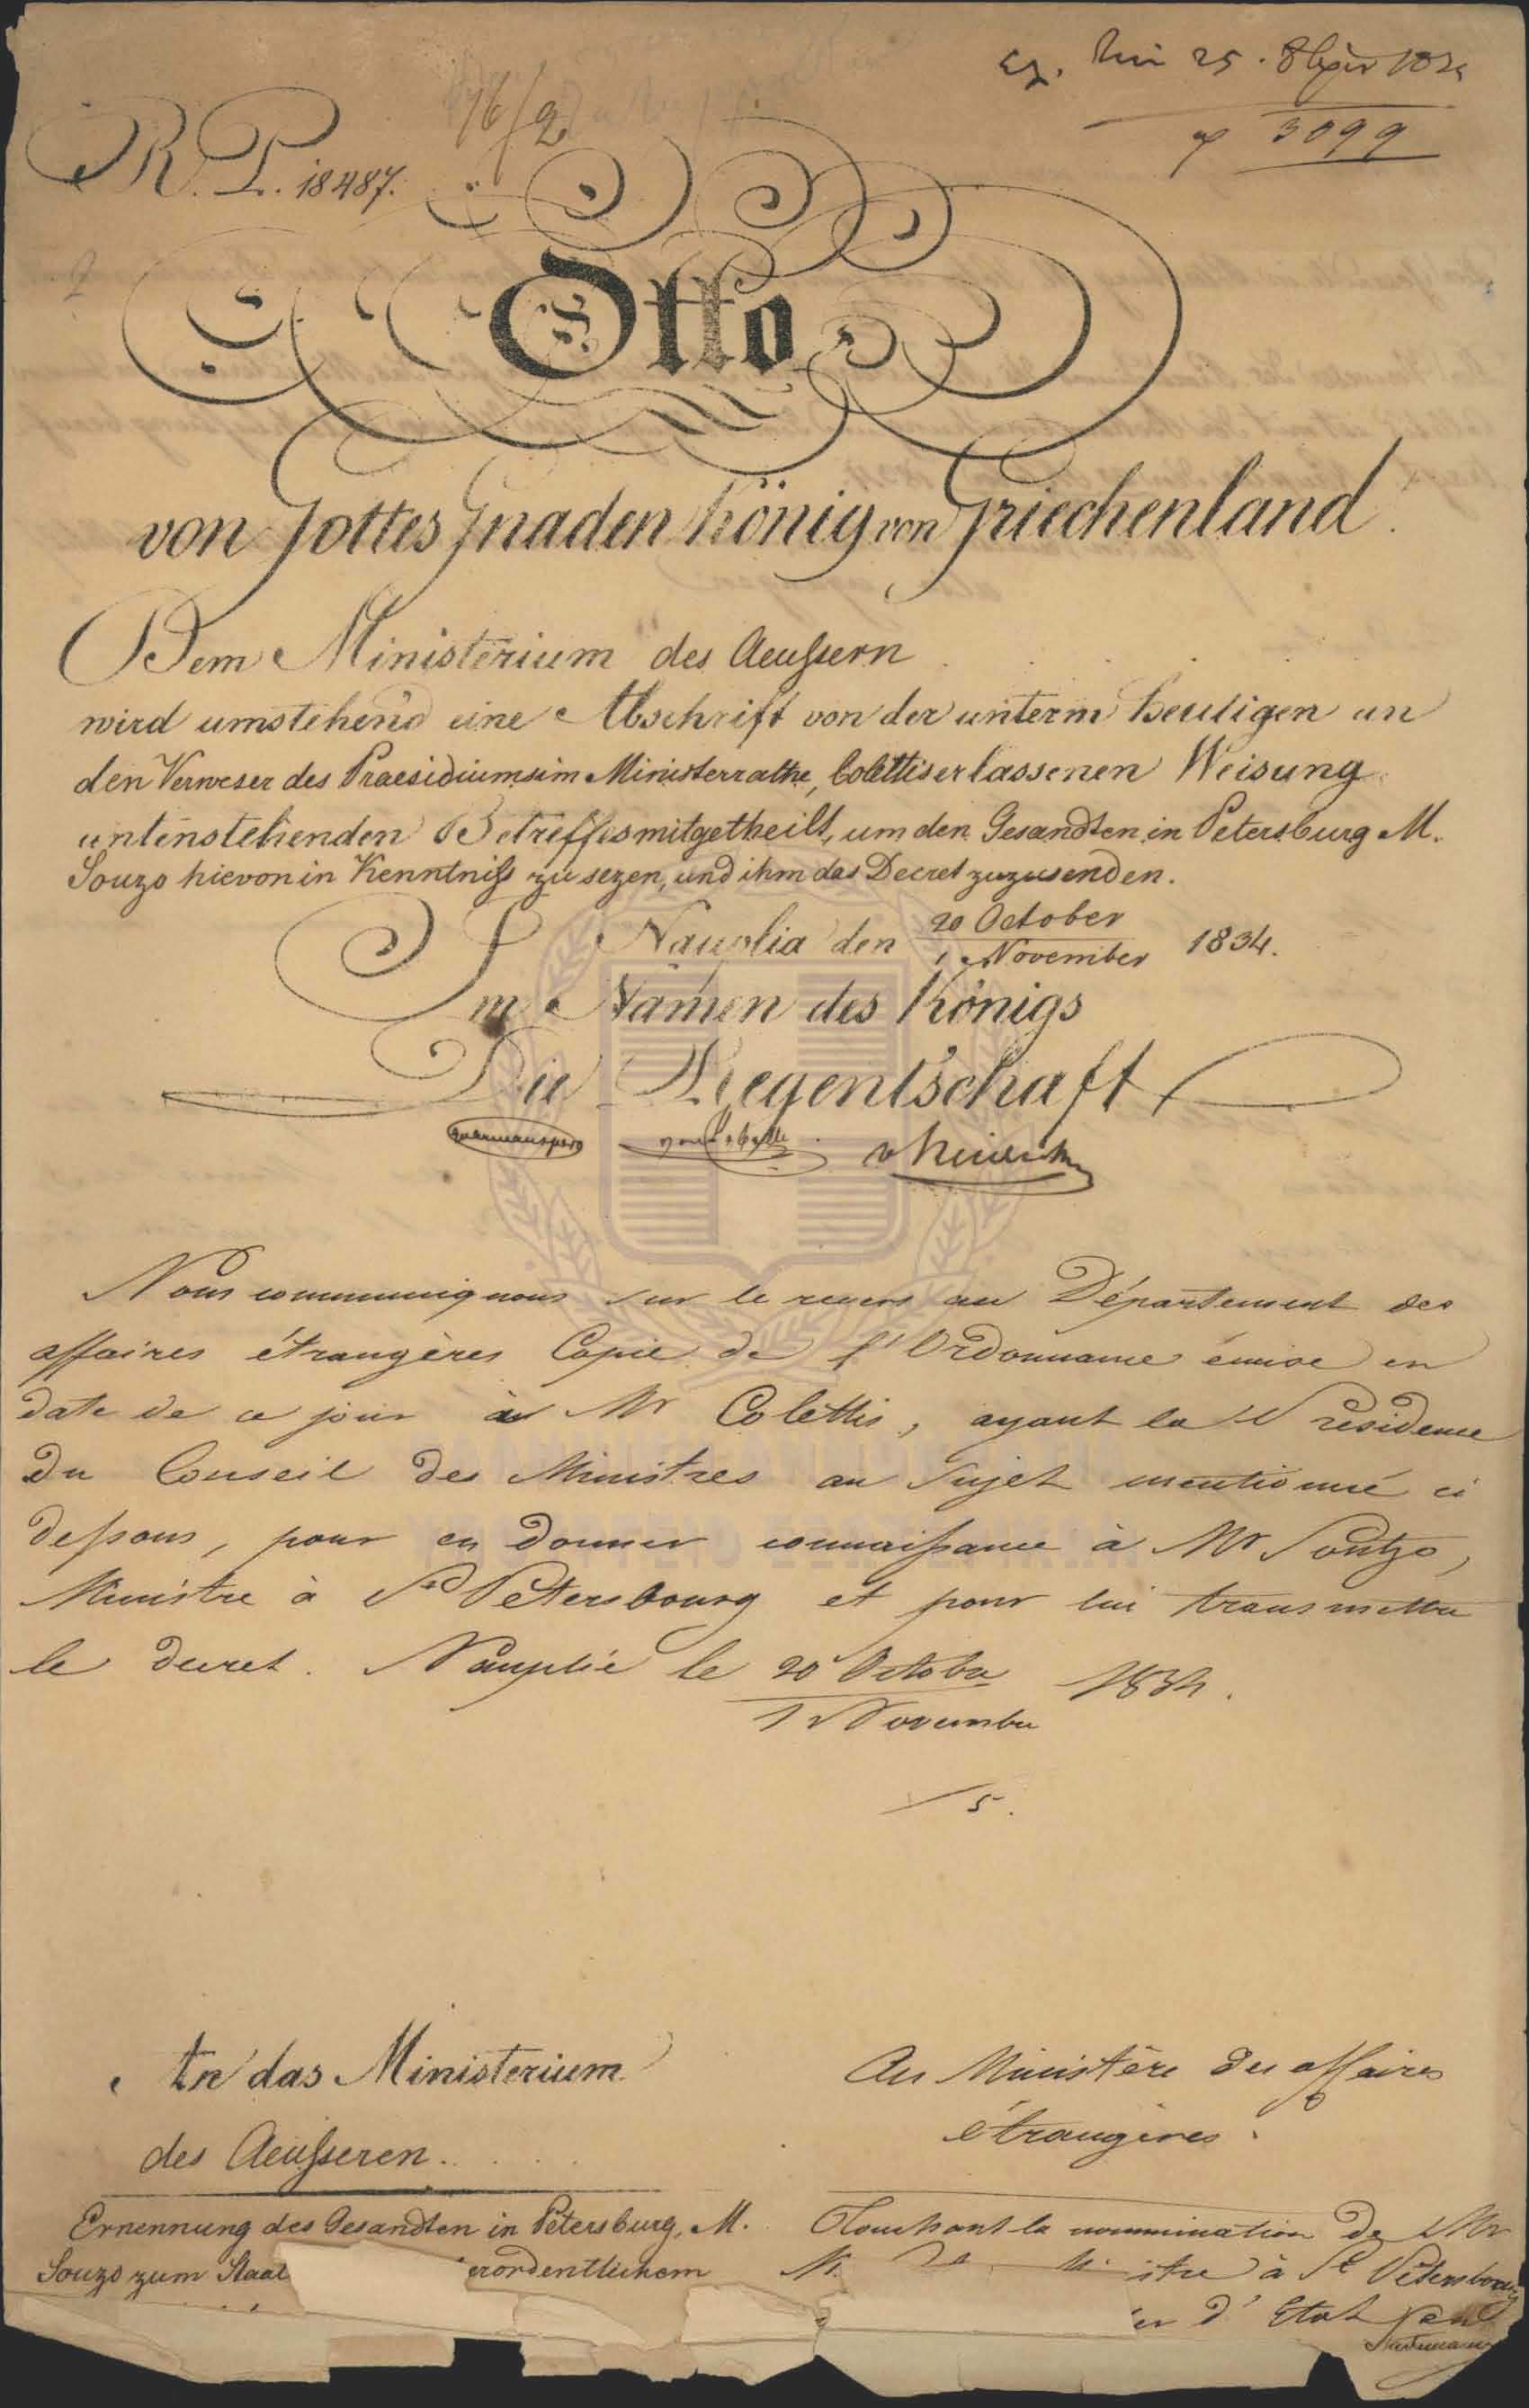 25
3099
16/2
R. P. 18487.
Otto
von Gottes Gnaden König von Griechenland.
Dem Ministerium des Aeußern
wird umstehend eine Abschrift von der unterm Heutigen an
den Verweser des Praesidiums im Ministerrathe, Colettis erlassenen Weisung
untenstehenden Betreffes mitgetheilt, um den Gesandten in Petersburg M.
Souzo hievon in Kenntniß zu sezen, und ihm das Decret zuzusenden.
Nauplia den 20 October / 1 November 1834.
Im Namen des Königs
Die Regentschaft
Nous communiquons sur le revers au Département des
affaires étrangères Copie de l'Ordonnance émise en
date de ce jour à Mr Colettis, ayant la Présidence
du Conseil des Ministres au sujet mentionné ci
dessous, pour en donner connaissance à Mr Soutzo,
Ministre à St Petersbourg et pour lui transmettre
le decret. Nauplie le 20 Octobre / 1 Novembre 1834.
5.
An das Ministerium
des Aeußeren.
Au Ministère des affaires
étrangères.
Ernennung des Gesandten in Petersburg, M.
Souzo zum Staats erordentlichem
Touchant la nommination de Mr
à St Petersbourg
d'Etat